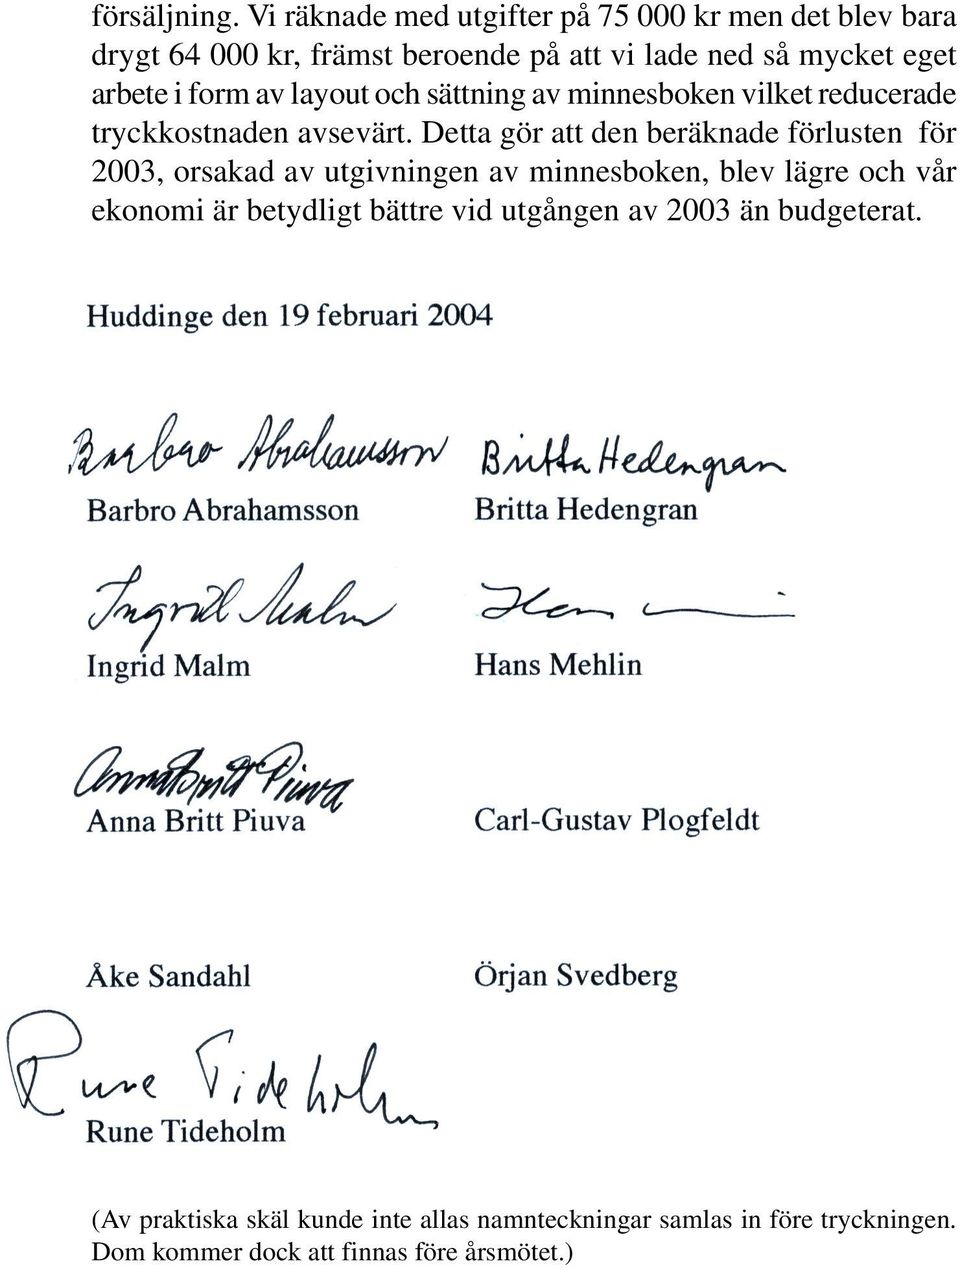 försäljning. Vi räknade med utgifter på 75 000 kr men det blev bara
drygt 64 000 kr, främst beroende på att vi lade ned så mycket eget
arbete i form av layout och sättning av minnesboken vilket reducerade
tryckkostnaden avsevärt. Detta gör att den beräknade förlusten för
2003, orsakad av utgivningen av minnesboken, blev lägre och vår
ekonomi är betydligt bättre vid utgången av 2003 än budgeterat.
Huddinge den 19 februari 2004
Barbro Abrahamsson Britta Hedengran
Barbro Abrahamsson Britta Hedengran
Ingrid Malm Hans
Ingrid Malm Hans Mehlin
Anna Britt Piuva
Anna Britt Piuva Carl-Gustav Plogfeldt
Åke Sandahl Örjan Svedberg
Rune Tideholm
Rune Tideholm
(Av praktiska skäl kunde inte allas namnteckningar samlas in före tryckningen.
Dom kommer dock att finnas före årsmötet.)